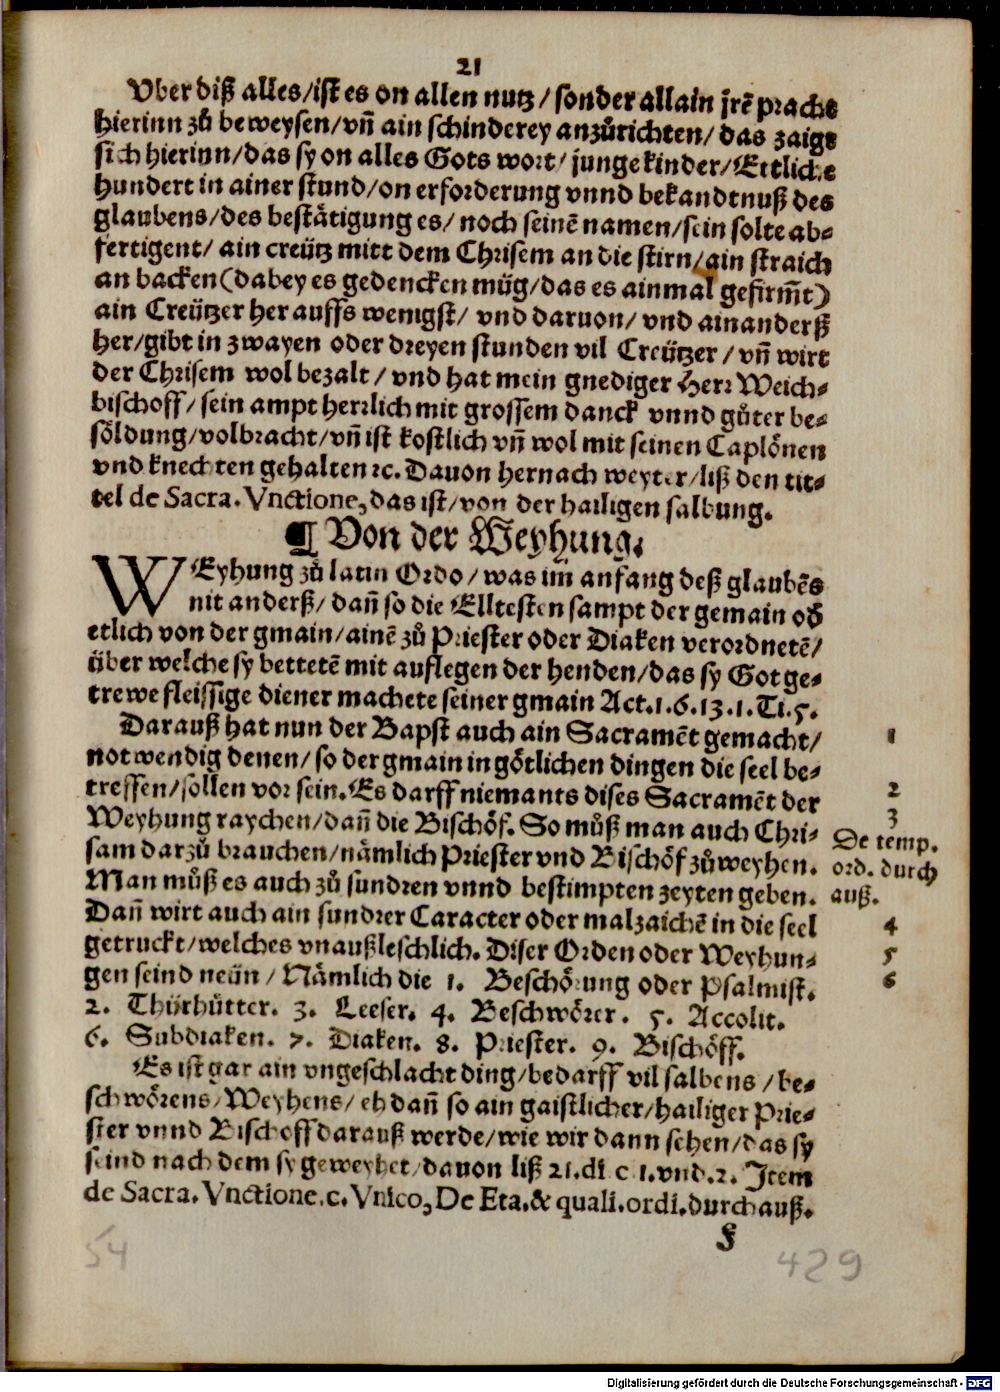 21
Vber diß alles/ist es on allen nutz/sonder allain jrē pracht
hierinn zů beweysen/vñ ain schinderey anzůrichten/das zaigt
sich hierinn/das sy on alles Gots wort/junge kinder/Ettliche
hundert in ainer stund/on erforderung vnnd bekandtnuß des
glaubens/des bestätigung es/noch seinē namen/sein solte ab-
fertigent/ain creütz mitt dem Chrisem an die stirn/ain straich
an backen (dabey es gedencken müg/das es ainmal gefirm̃t)
ain Creützer her auffs wenigst/vnd daruon/vnd ainanderß
her/gibt in zwayen oder dreyen stunden vil Creützer/vñ wirt
der Chrisem wol bezalt/vnd hat mein gnediger Herr Weich-
bischoff/sein ampt herrlich mit grossem danck vnnd gůter be-
söldung/volbracht/vñ ist kostlich vñ wol mit seinen Caplönen
vnd knechten gehalten ꝛc. Dauon hernach weyter/liß den tit-
tel de Sacra. Vnctione, das ist/von der hailigen salbung.
¶ Von der Weyhung.
WEyhung zů latin Ordo/was im anfang deß glaubēs
nit anderß/dañ so die Elltesten sampt der gemain oď
etlich von der gmain/ainē zů Priester oder Diaken verordnetē/
über welche sy bettetē mit auflegen der henden/das sy Got ge-
trewe fleissige diener machete seiner gmain Act.1.6.13.1.Ti.5.
Darauß hat nun der Bapst auch ain Sacramēt gemacht/ 1
notwendig denen/so der gmain in götlichen dingen die seel be-
treffen/sollen vor sein. Es darff niemants dises Sacramēt der 2
Weyhung raychen/dañ die Bischöf. So můß man auch Chri- 3
sam darzů brauchen/nämlich Priester vnd Bischöf zůweyhen. De temp.
Man můß es auch zů sundren vnnd bestimpten zeyten geben. ord. durch
auß.
Dañ wirt auch ain sundrer Caracter oder malzaichē in die seel 4
getruckt/welches vnaußleschlich. Diser Orden oder Weyhun- 5
gen seind neün/Nämlich die 1. Beschörung oder Psalmist. 6
2. Thürhütter. 3. Leeser. 4. Beschwörer. 5. Accolit.
6. Subdiaken. 7. Diaken. 8. Priester. 9. Bischöff.
Es ist gar ain vngeschlacht ding/bedarff vil salbens/be-
schwörens/Weyhens/eh dañ so ain gaistlicher/hailiger Prie-
ster vnnd Bischoff darauß werde/wie wir dann sehen/das sy
seind nach dem sy geweyhet/dauon liß 21. di c 1. vnd. 2. Item
de Sacra. Vnctione. c. Vnico, De Eta. & quali. ordi. durchauß.
F
54
429
Digitalisierung gefördert durch die Deutsche Forschungsgemeinschaft - DFG